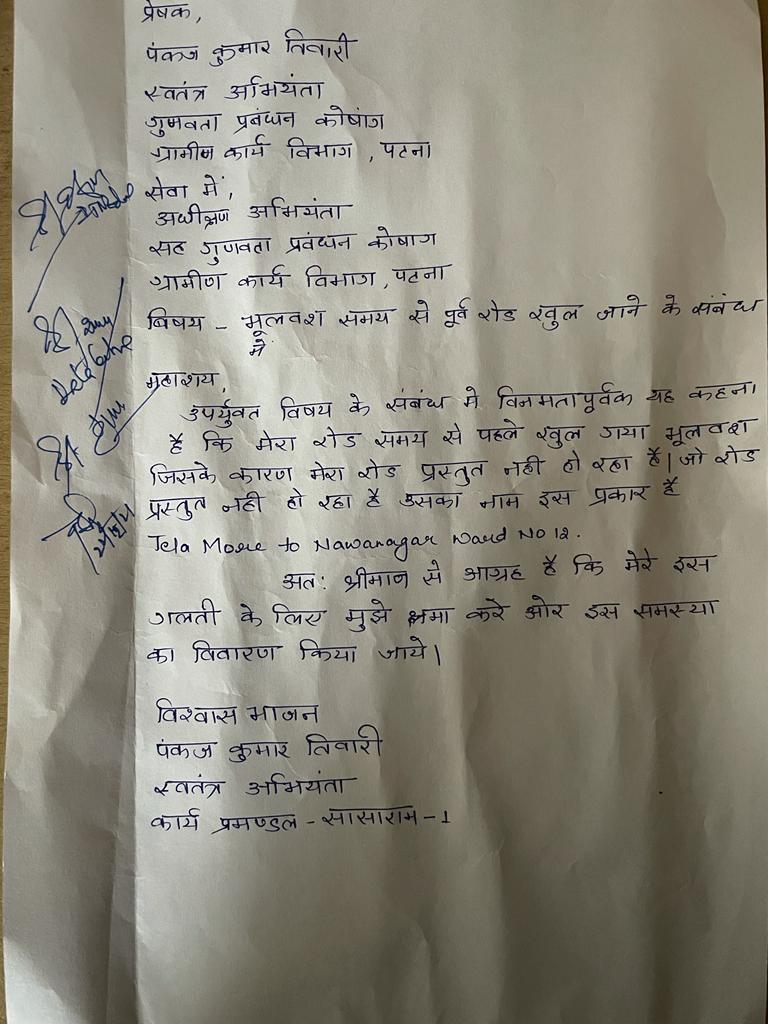 प्रेषक,
पंकज कुमार तिवारी
स्वतंत्र अभियंता
गुणवता प्रबंधन कोषांग
ग्रामीण कार्य विभाग, पटना
सेवा में,
अधीक्षण अभियंता
सह गुणवता प्रवंधन कोषाग
ग्रामीण कार्य विभाग, पटना
विषय - भूलवश समय से पूर्व रोड खुल जाने के संबंध
में
महाशय,
उपर्युक्त विषय के संबंध मे विनमतापूर्वक यह कहना
है कि मेरा रोड समय से पहले खुल गया भूलवश
जिसके कारण मेरा रोड प्रस्तुत नही हो रहा है। जो रोड
प्रस्तुत नही हो रहा है उसका नाम इस प्रकार है
to Nawanagar ward No 12.
अत: श्रीमान से आग्रह है कि मेरे इस
गलती के लिए मुझे क्षमा करे ओर इस समस्या
का विवारण किया जाये।
विश्वास भाजन
पंकज कुमार तिवारी
स्वतंत्र अभियंता
कार्य प्रमण्डल - सासाराम - 1